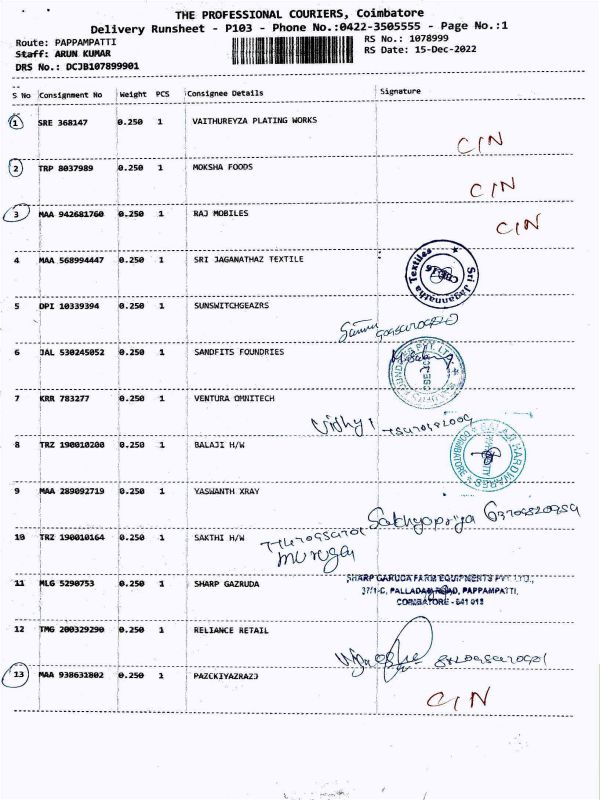 THE PROFESSIONAL COURIERS, Coimbatore
Delivery Runsheet - P103 - Phone No.:0422-3505555 - Page No.:1
Route: PAPPAMPATTI
RS No.: 1078999
Staff: ARUN KUMAR
RS Date: 15-Dec-2022
DRS No.: DCJB107899901
S No Consignment No Weight PCS Consignee Details Signature
1 SRE 368147 0.250 1 VAITHUREYZA PLATING WORKS
CIN
2 TRP 8037989 0.250 1 MOKSHA FOODS
CIN
3 MAA 942681760 0.250 1 RAJ MOBILES
CIN
4 MAA 568994447 0.250 1 SRI JAGANATHAZ TEXTILE
Sri Jagannatha Textiles
5 DPI 10339394 0.250 1 SUNSWITCHGEAZRS
6 JAL 530245052 0.250 1 SANDFITS FOUNDRIES
7 KRR 783277 0.250 1 VENTURA OMNITECH
8 TRZ 190010200 0.250 1 BALAJI H/W
BALAJI HARDWARES
COIMBATORE
9 MAA 289092719 0.250 1 YASWANTH XRAY
10 TRZ 190010164 0.250 1 SAKTHI H/W
11 MLG 5290753 0.250 1 SHARP GAZRUDA
SHARP GARUDA FARM EQUIPMENTS PVT. LTD.,
37/1-C, PALLADAM ROAD, PAPPAMPATTI,
COIMBATORE - 641 016
12 TMG 200329290 0.250 1 RELIANCE RETAIL
13 MAA 938631802 0.250 1 PAZCKIYAZRAZJ
CIN